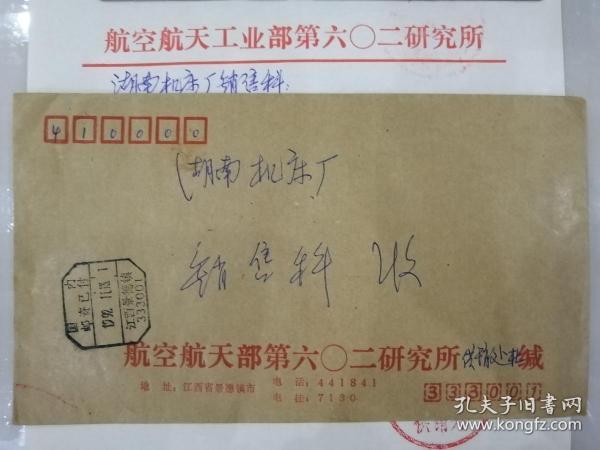 航空航天工业部第六〇二研究所
湖南机床厂销售科：
410000
湖南机床厂
销售科 收
国内
邮资已付
江西景德镇
333001
航空航天部第六〇二研究所 供销处 缄
地 址：江西省景德镇市 电 话：441841
电 挂：7130
333001
孔夫子旧书网
kongfz.com